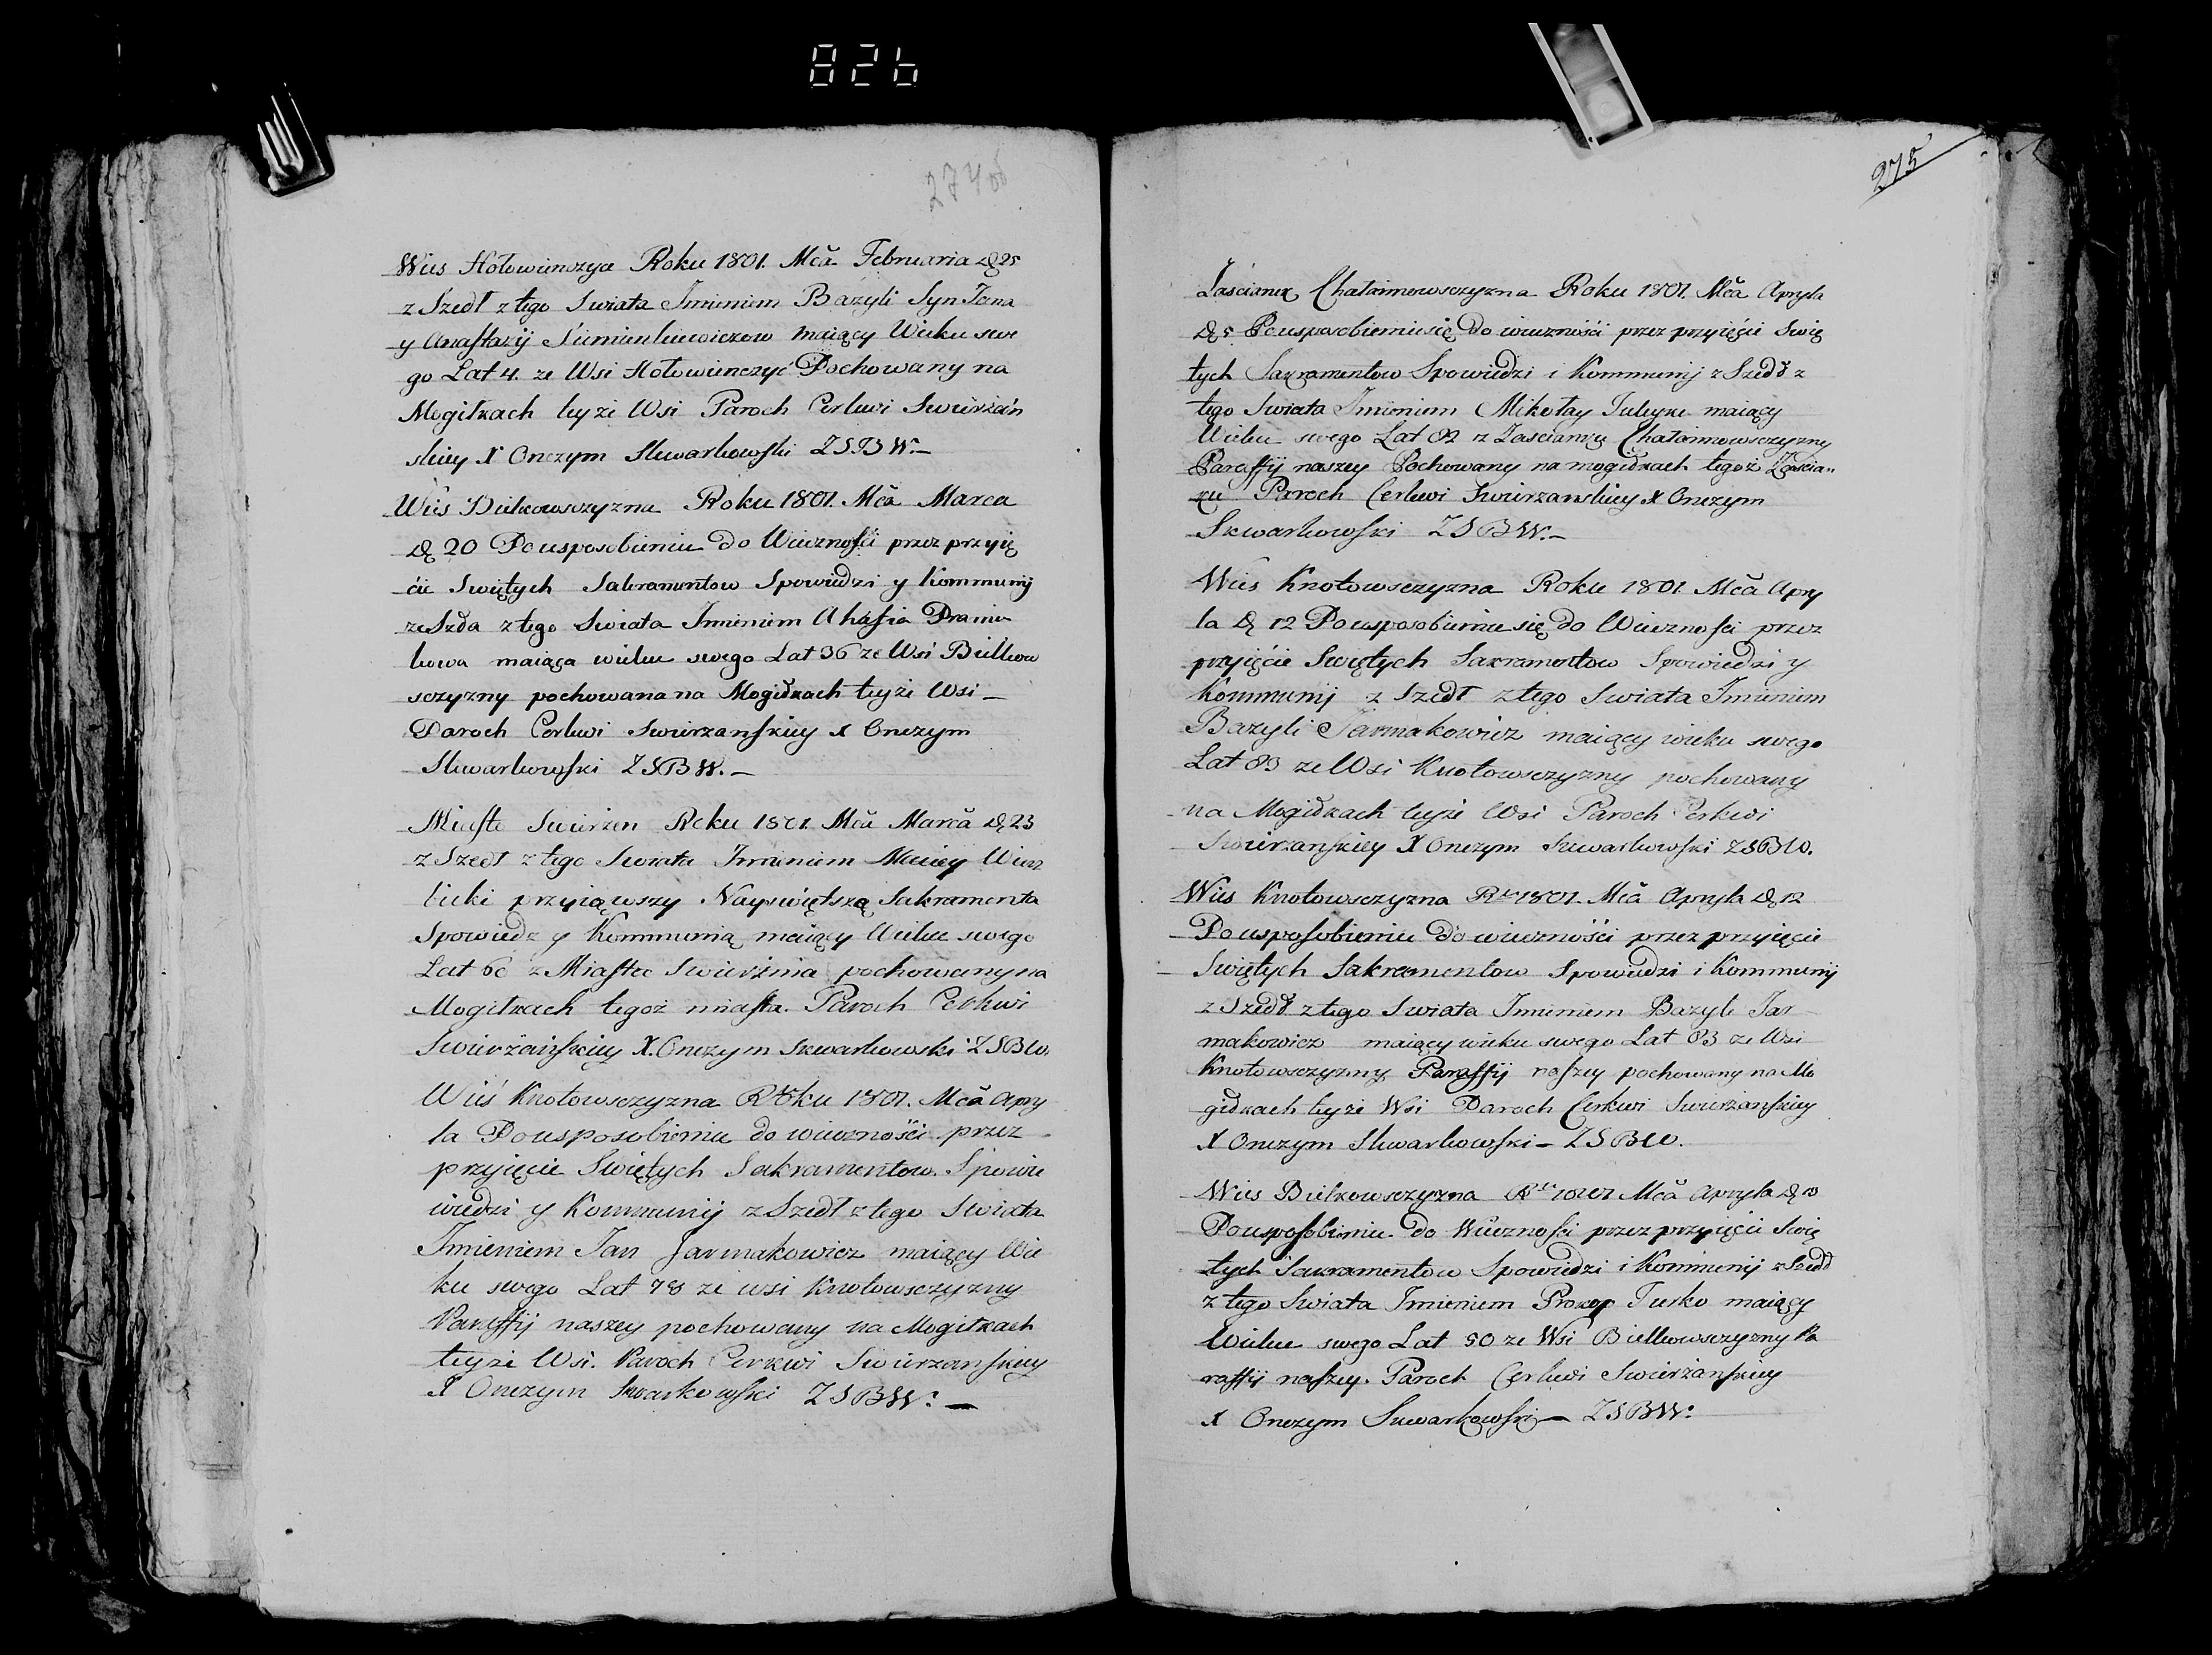 826
274 об
Wieś Hołowienczyce Roku 1801. Mca Februaria D 25
z Szedł z tego Swiata Jmieniem Bazyli Syn Jana
y Anastazij Simienkiewiczow maiący Wieku swe
go Lat 4. ze Wsi Hołowienczyc Pochowany na
Mogiłkach teyże Wsi Paroch Cerkwi Swierżań
skiey X Onezym Skwarkowski ZSBW.–
Wieś Bielkowszczyzna Roku 1801. Mca Marca
D 20 Po usposobieniu do Wieczności przez przyię
cie Swiętych Sakramentow Spowiedzi y Kommunij
ze Szda z tego Swiata Jmieniem Ahafia
kowa maiąca wieku swego Lat 36 ze Wsi Bielkow
szczyzny pochowana na Mogiłkach teyże Wsi –
Paroch Cerkwi Swierzanskiey X Onezym
Skwarkowski ZSBW. –
Miasto Swierżen Roku 1801. Mca Marca D 23
z Szedł z tego Swiata Jmieniem Maciey Wierz
bicki przyiąwszy Nayswiętszą Sakramenta
Spowiedz y Kommunią maiący Wieku swego
Lat 60 z Miasta Swierżnia pochowany na
Mogiłkach tegoż miasta. Paroch Cerkwi
Swierżańskiey X. Onezym Skwarkowski ZSBW.
Wieś Knotowszczyzna Roku 1801. Mca Apry
la Po usposobieniu do wieczności przez
przyięcie Swiętych Sakramentow. Spowie
wiedzi y Kommunij z Szedł z tego Swiata
Jmieniem Jan Jarmakowicz maiący Wie
ku swego Lat 78 ze wsi Knotowszczyzny
Paraffij naszey pochowany na Mogiłkach
teyże Wsi. Paroch Cerkwi Swierzanskiey
X Onezym Skwarkowski ZSBW. –
275
Zascianek Chataimowszczyzna Roku 1801. Mca Apryla
D 5 Po usposobieniu się do wieczności przez przyięcie Swię
tych Sakramentow Spowiedzi i Kommunij z Szedł z
tego Swiata Jmieniem Mikołay maiący
Wieku swego Lat 82 z Zascianku Chataimowszczyzny
Paraffij naszey Pochowany na mogiłkach tegoż Zascian
ku Paroch Cerkwi Swierzanskiey X Onezym
Skwarkowski ZSBW.–
Wieś Knotowszczyzna Roku 1801. Mca Apry
la D 12 Po usposobieniu się do Wieczności przez
przyięcie Swiętych Sakramentow Spowiedzi y
Kommunij z Szedł z tego Swiata Jmieniem
Bazyli Jarmakowicz maiący wieku swego
Lat 83 ze Wsi Knotowszczyzny pochowany
na Mogiłkach teyże Wsi Paroch Cerkwi
Swierzanskiey X Onezym Skwarkowski ZSBW.
Wieś Knotowszczyzna Rku 1801. Mca Apryla D 12
Po usposobieniu do wieczności przez przyięcie
Swiętych Sakramentow Spowiedzi i Kommunij
z Szedł z tego Swiata Jmieniem Bazyli Jar
makowicz maiący wieku swego Lat 83 ze Wsi
Knotowszczyzny Paraffij naszey pochowany na Mo
giłkach teyże Wsi Paroch Cerkwi Swierzanskiey
X Onezym Skwarkowski – ZSBW.
Wieś Bielkowszczyzna Rku 1801 Mca Apryla D
Po usposobieniu do Wieczności przez przyięcie Swię
tych Sakramentow Spowiedzi i Kommunij z Szedł
z tego Swiata Jmieniem Prokop Turko maiący
Wieku swego Lat 50 ze Wsi Bielkowszczyzny Pa
raffij naszey. Paroch Cerkwi Swierżanskiey
X Onezym Skwarkowski – ZSBW.